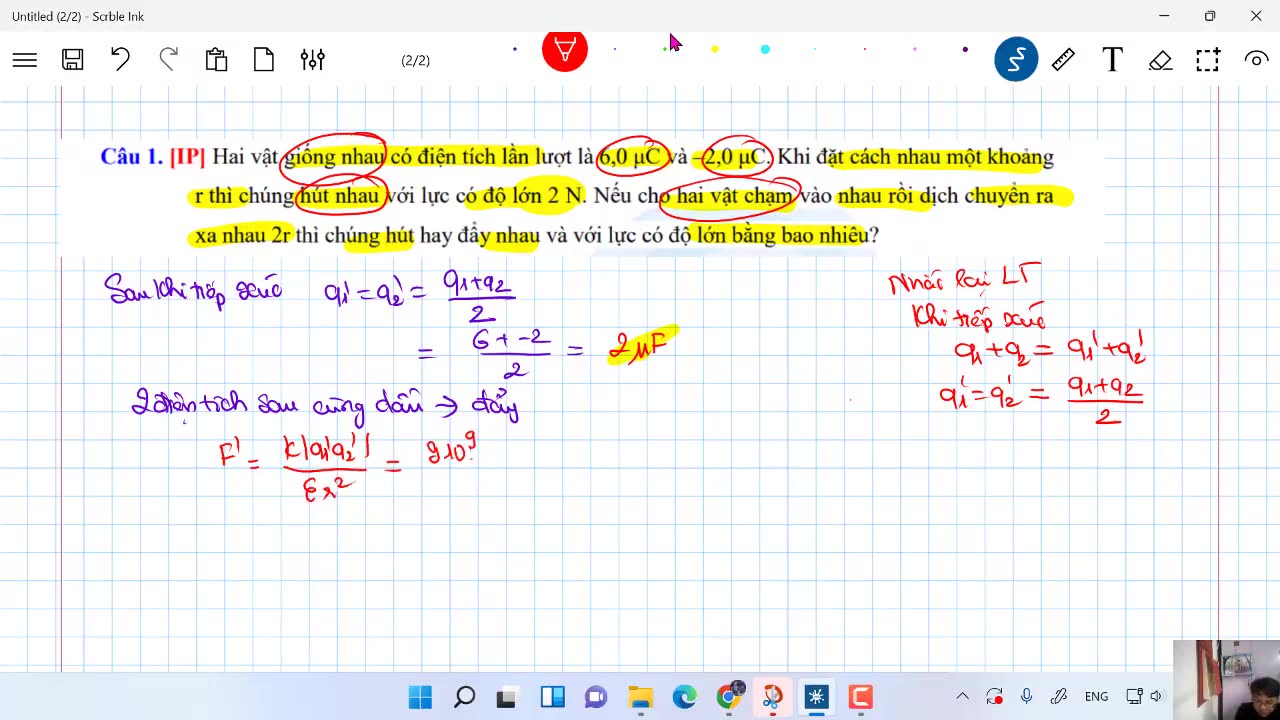 Untitled (2/2) - Scrble Ink
(2/2)
T
Câu 1. [IP] Hai vật giống nhau có điện tích lần lượt là 6,0 μC và –2,0 μC. Khi đặt cách nhau một khoảng
r thì chúng hút nhau với lực có độ lớn 2 N. Nếu cho hai vật chạm vào nhau rồi dịch chuyển ra
xa nhau 2r thì chúng hút hay đẩy nhau và với lực có độ lớn bằng bao nhiêu?
Sau khi tiếp xúc q₁' = q₂' = (q₁+q₂)/2
= (6 + -2)/2 = 2μF
2 điện tích sau cùng dấu → đẩy
F' = k|q₁'q₂'|/εr² = 9.10⁹.
Nhắc lại LT
Khi tiếp xúc
q₁ + q₂ = q₁' + q₂'
q₁' = q₂' = (q₁+q₂)/2
ENG